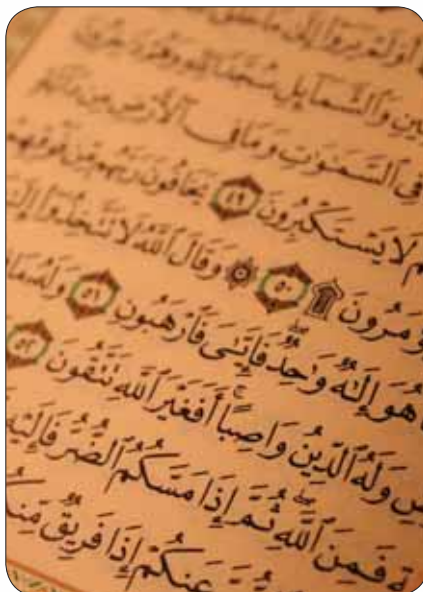 أَوَلَمْ يَرَوْا۟ إِلَىٰ مَا خَلَقَ
وَٱلشَّمَآئِلِ سُجَّدًا لِّلَّهِ وَهُمْ دَٰخِرُونَ
فِى ٱلسَّمَٰوَٰتِ وَمَا فِى ٱلْأَرْضِ مِن دَآبَّةٍ
لَا يَسْتَكْبِرُونَ ٤٩ يَخَافُونَ رَبَّهُم مِّن فَوْقِهِمْ
يُؤْمَرُونَ ۩ ٥٠ ۞ وَقَالَ ٱللَّهُ لَا تَتَّخِذُوٓا۟
هُوَ إِلَٰهٌ وَٰحِدٌ فَإِيَّٰىَ فَٱرْهَبُونِ ٥١ وَلَهُۥ مَا
وَلَهُ ٱلدِّينُ وَاصِبًا ۚ أَفَغَيْرَ ٱللَّهِ تَتَّقُونَ ٥٢
فَمِنَ ٱللَّهِ ۖ ثُمَّ إِذَا مَسَّكُمُ ٱلضُّرُّ فَإِلَيْهِ
عَنكُمْ إِذَا فَرِيقٌ مِّنكُم